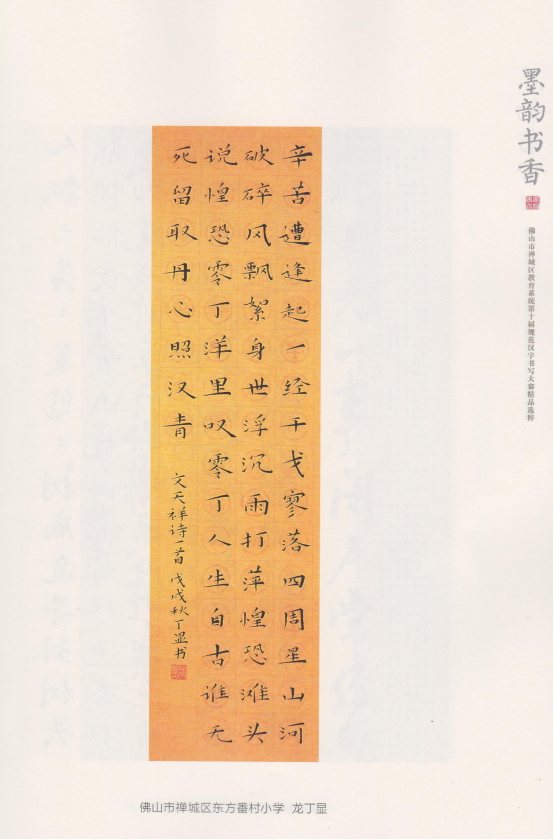 墨韵书香
佛山市禅城区教育系统第十届规范汉字书写大赛精品选粹
辛苦遭逢起一经干戈寥落四周星山河
破碎风飘絮身世浮沉雨打萍惶恐滩头
说惶恐零丁洋里叹零丁人生自古谁无
死留取丹心照汉青
文天祥诗一首 戊戌秋丁显书
佛山市禅城区东方番村小学 龙丁显